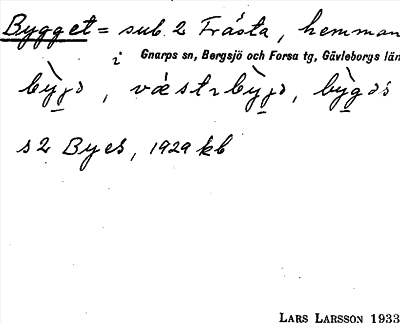 Bygget = sub. 2 Frásta, hemman
i Gnarps sn, Bergsjö och Forsa tg, Gävleborgs län
s 2 Byes, 1929 kb
LARS LARSSON 1933